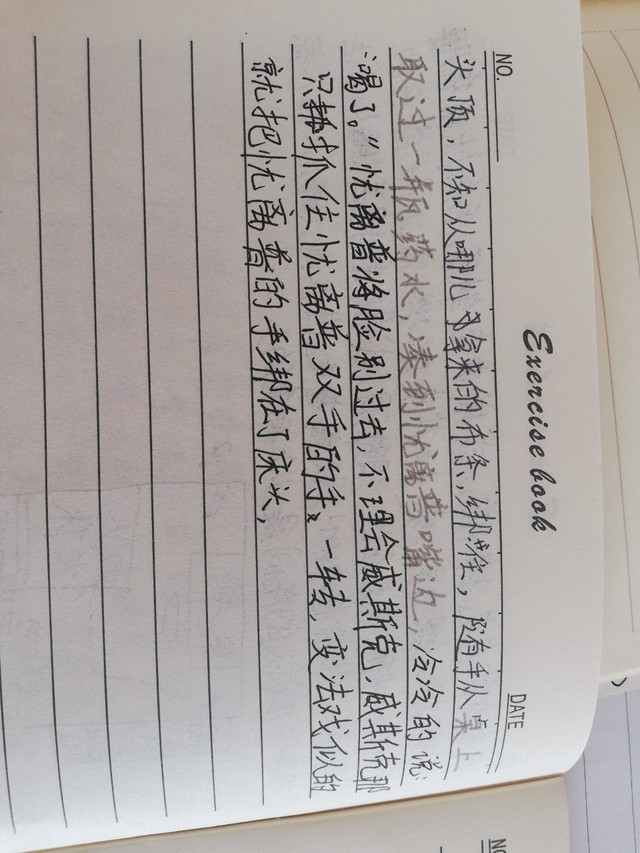 Exercise book
NO.
DATE
头顶，不知从哪儿拿来的布条，绑住，随手从桌上
取过一瓶药水，凑到忧离普嘴边，冷冷的说：
“喝了。”忧离普将脸别过去，不理会威斯克，威斯克那
只抓住忧离普双手的手，一转，变法戏似的
就把忧离普的手绑在了床头，
NO